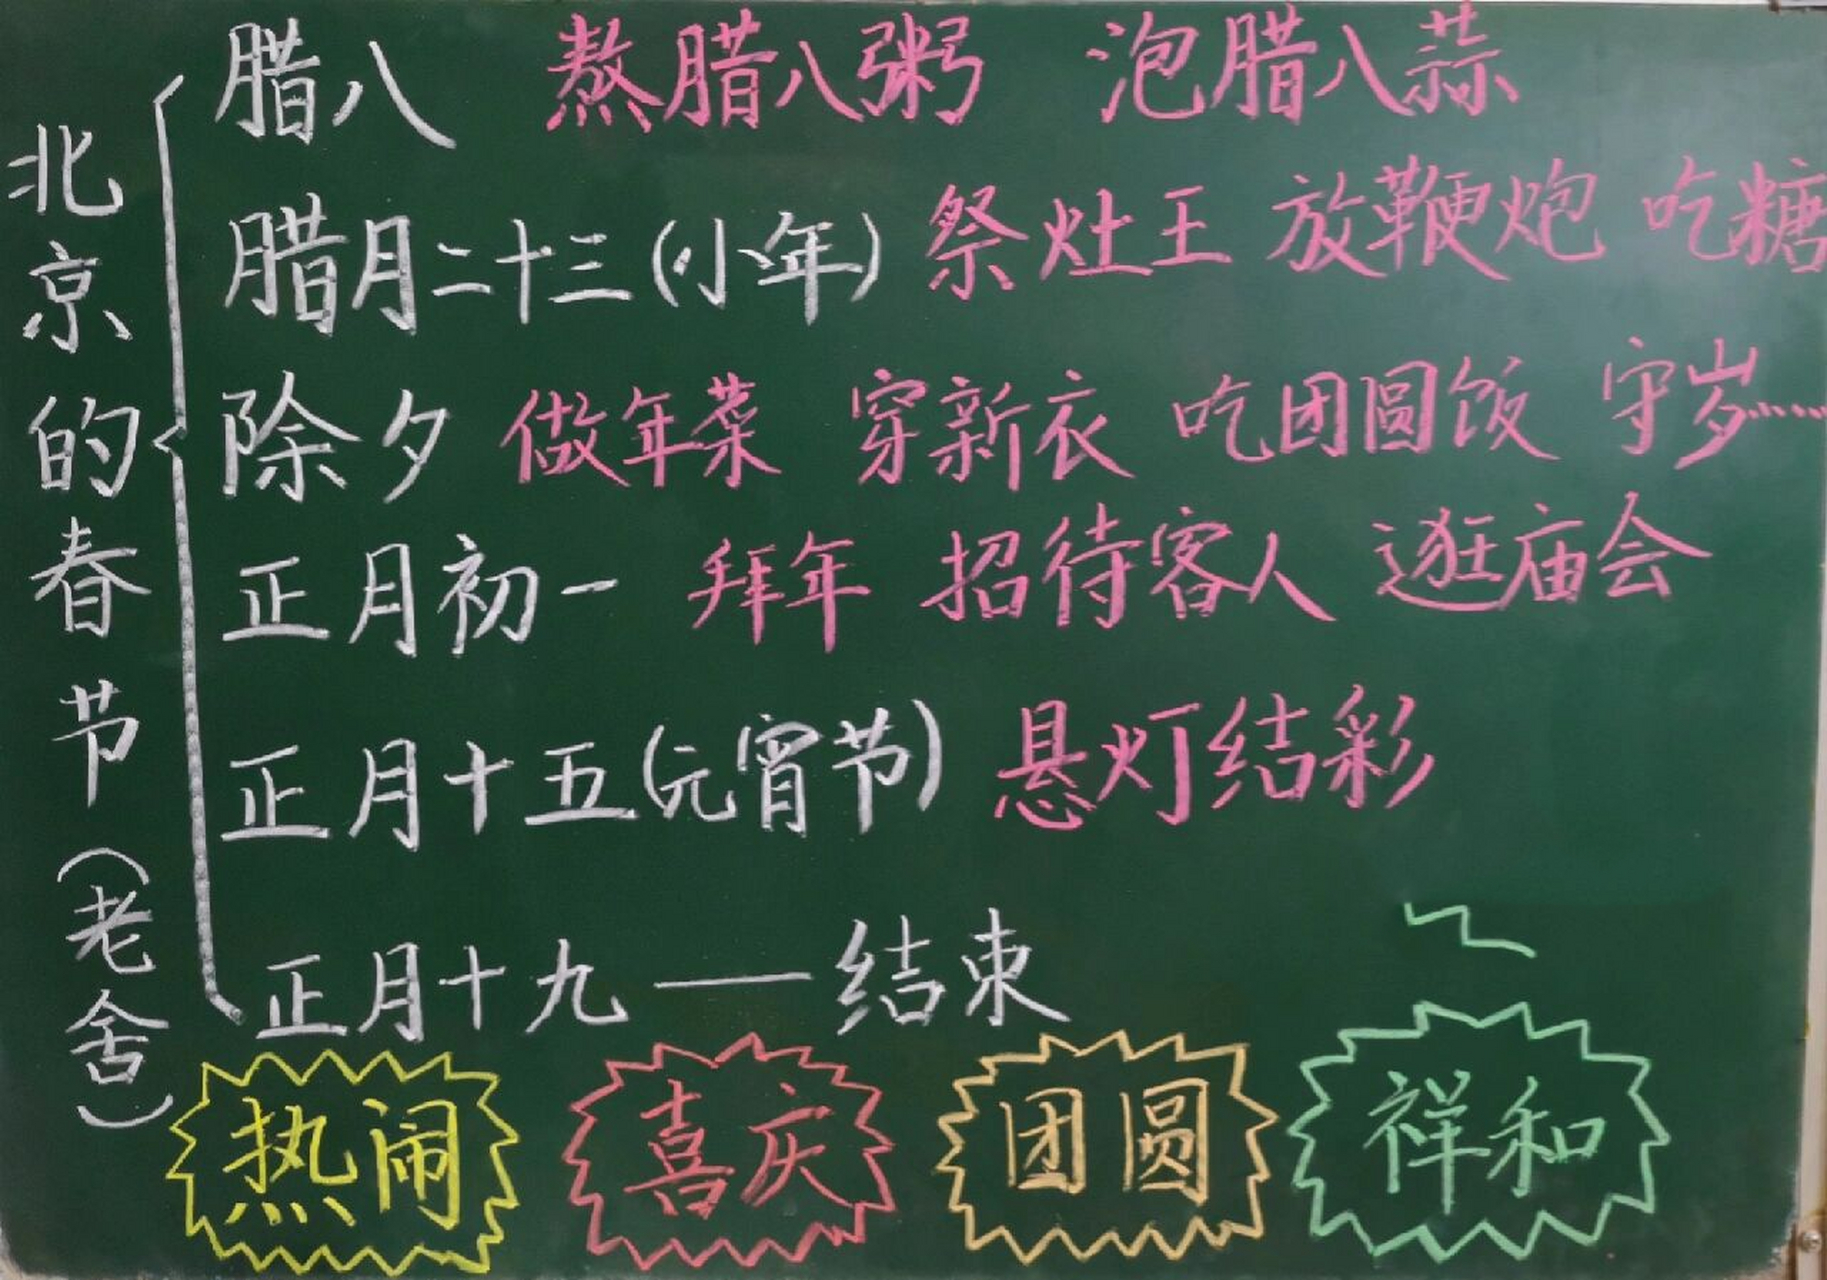 北京的春节(老舍)
腊八 熬腊八粥 泡腊八蒜
腊月二十三(小年) 祭灶王 放鞭炮 吃糖
除夕 做年菜 穿新衣 吃团圆饭 守岁……
正月初一 拜年 招待客人 逛庙会
正月十五(元宵节) 悬灯结彩
正月十九——结束
热闹 喜庆 团圆 祥和